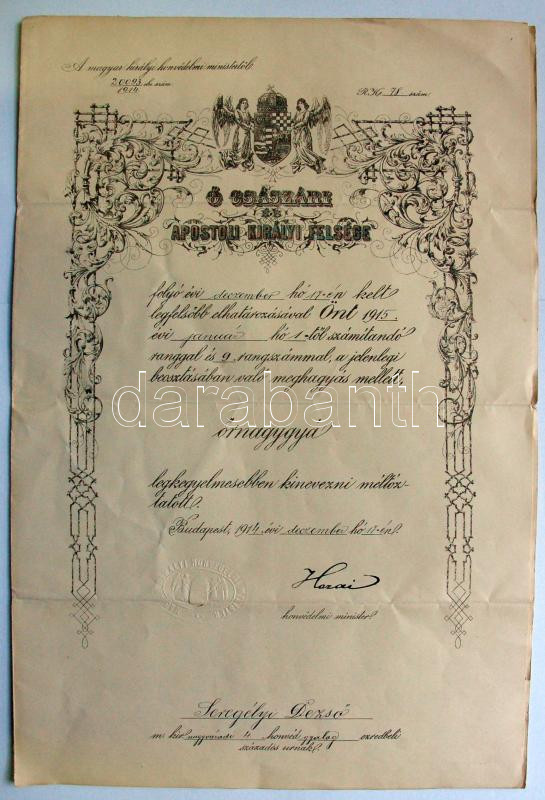 A magyar királyi honvédelmi ministertől.
20093 eln. szám
1914
R. K. 78 szám
Ő CSÁSZÁRI
ÉS
APOSTOLI KIRÁLYI FELSÉGE
folyó évi deczember hó 17-én kelt
legfelsőbb elhatározásával Önt 1915.
évi január hó 1-től számítandó
ranggal és 9. rangszámmal, a jelenlegi
beosztásában való meghagyás mellett,
darabanth
őrnagygyá
legkegyelmesebben kinevezni méltóz-
tatott.
Budapest, 1914. évi deczember hó 17-én.
Hazai
honvédelmi minister.
Seregélyi Dezső
m. kir. nagyváradi 4 honvéd gyalog ezredbeli
százados úrnak.